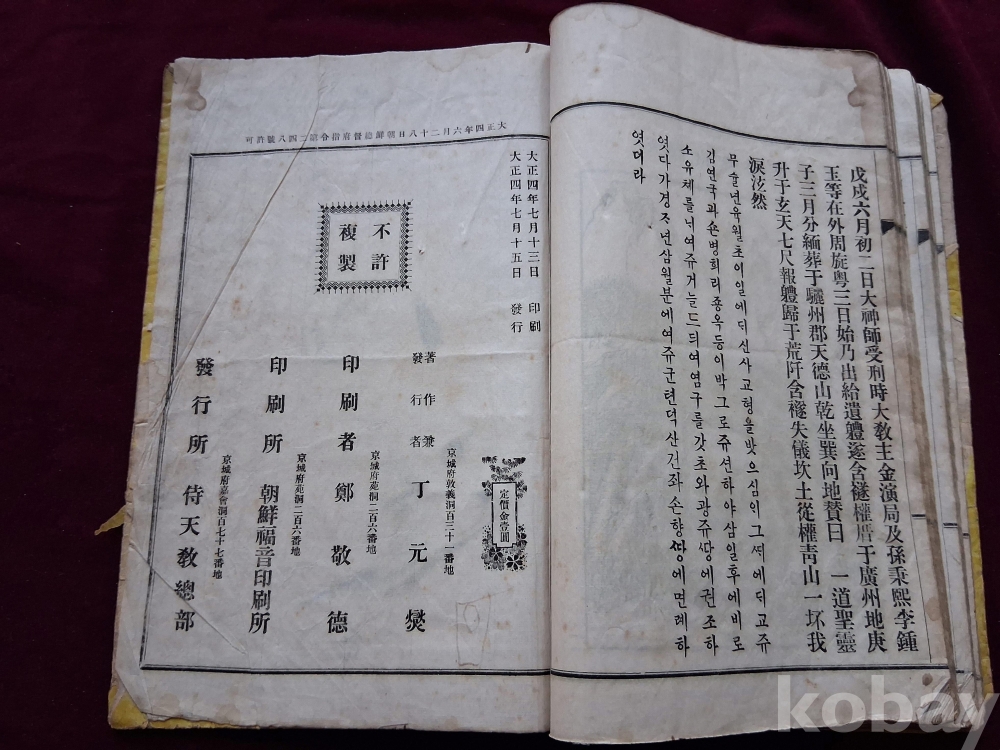 戊戌六月初二日大神師受刑時大敎主金演局及孫秉熙李鍾
玉等在外周旋粤三日始乃出給遺軆遂含襚權厝于廣州地庚
子三月分緬葬于驪州郡天德山乾坐巽向地贊曰 一道聖靈
升于玄天七尺報軆歸于荒阡含襚失儀坎土從權靑山一坏我
淚泫然
무술년육월초이일에ᄃᆡ신사교형을밧으심이그ᄯᅢ에ᄃᆡ교쥬
김연국과손병희리종옥등이박그로쥬션하야삼일후에비로
소유체를ᄂᆡ여쥬거늘드듸여염구를갓초와광쥬ᄯᅡᆼ에권조하
엿다가경ᄌᆞ년삼월분에여쥬군텬덕산건좌손향ᄯᅡᆼ에면례하
엿더라
大正四年六月二十八日朝鮮總督府指令第二四八號許可
大正四年七月十三日 印刷
大正四年七月十五日 發行
不許
複製
定價金壹圓
京城府敦義洞百三十一番地
著作兼
發行者 丁元燮
京城府苑洞二百六番地
印刷者 鄭敬德
京城府苑洞二百六番地
印刷所 朝鮮福音印刷所
京城府嘉會洞百七十七番地
發行所 侍天敎總部
kobay